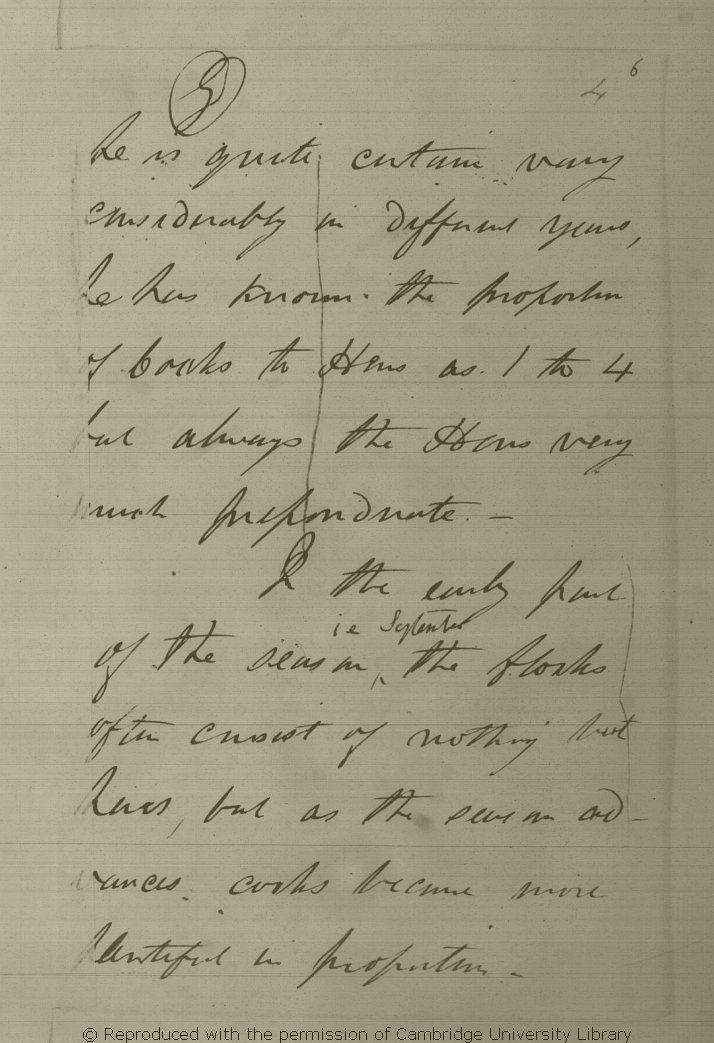 4 6
he is quite certain vary
considerably in different years,
he has known the proportion
of Cocks to Hens as 1 to 4
but always the Hens very
much preponderate. —
In the early part
ie September
of the season, the flocks
often consist of nothing but
hens, but as the season ad-
vances cocks become more
plentiful in proportion. -
© Reproduced with the permission of Cambridge University Library